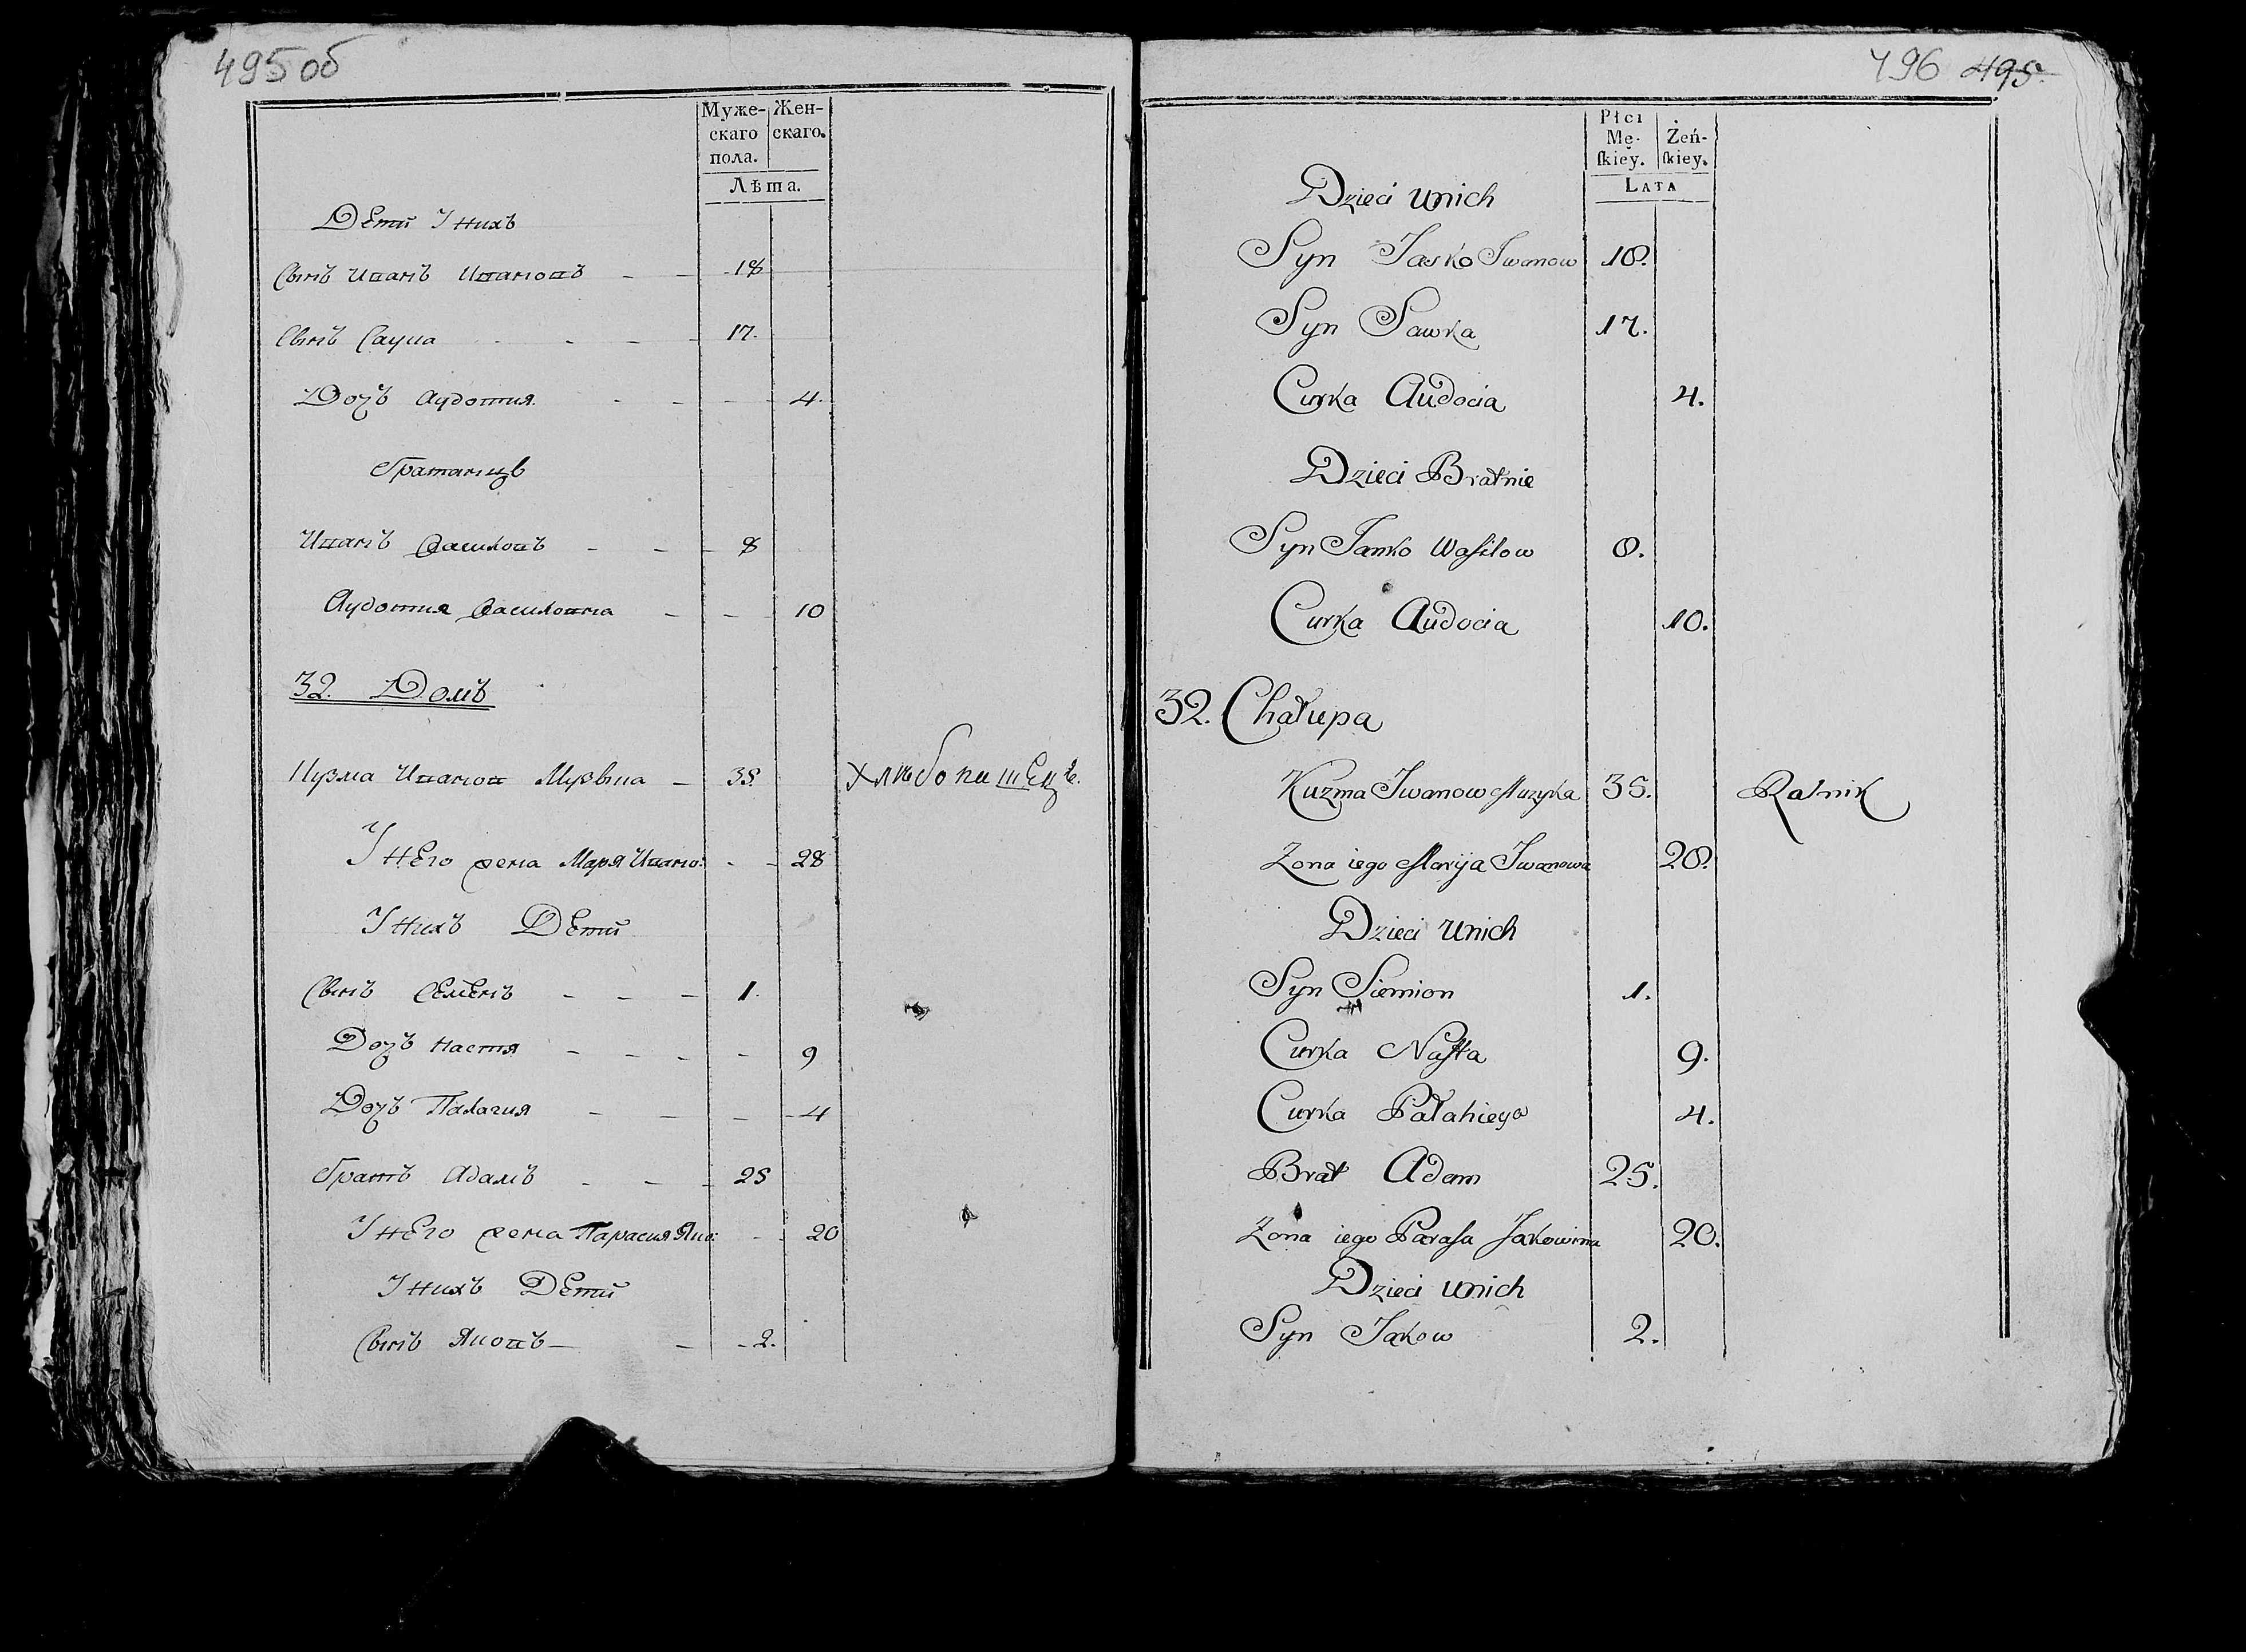 495 об
Муже-
скаго
пола.
Жен-
скаго.
Лѣта.
Дети Унихъ
Сынъ Иванъ Ивановъ - - 18
Сынъ Саука - - - - 17.
Дочь Аудотия - - - - 4.
Братанцѣ
Иванъ Василовъ - - - 8
Аудотия Василовна - - 10
32. Домъ
Кузма Иванов Музыка - 35. Хлѣбопашецъ.
У него жена Маря Ивано: - - 28
Унихъ Дети
Сынъ Семенъ - - - 1.
Дочъ Настя - - - - 9
Дочъ Палагия - - - - 4
Братъ Адамъ - - - 25
У него жена Парасия Яко: - - 20
Унихъ Дети
Сынъ Яковъ - - - 2.
496 495.
Płci
Mę-
ſkiey.
Żeń-
ſkiey.
LATA
Dzieci unich
Syn Jasko Iwanow 18.
Syn Sawka 17.
Curka Audocia 4.
Dzieci Bratnie
Syn Janko Waſilow 8.
Curka Audocia 10.
32. Chałupa
Kuzma Iwanow Muzyka 35. Ratnik
Zona iego Marija Iwanowa 28.
Dzieci unich
Syn Siemion 1.
Curka Naſta 9.
Curka Pałahieya 4.
Brat Adam 25.
Zona iego Paraſa Jakowina 20.
Dzieci unich
Syn Jakow 2.